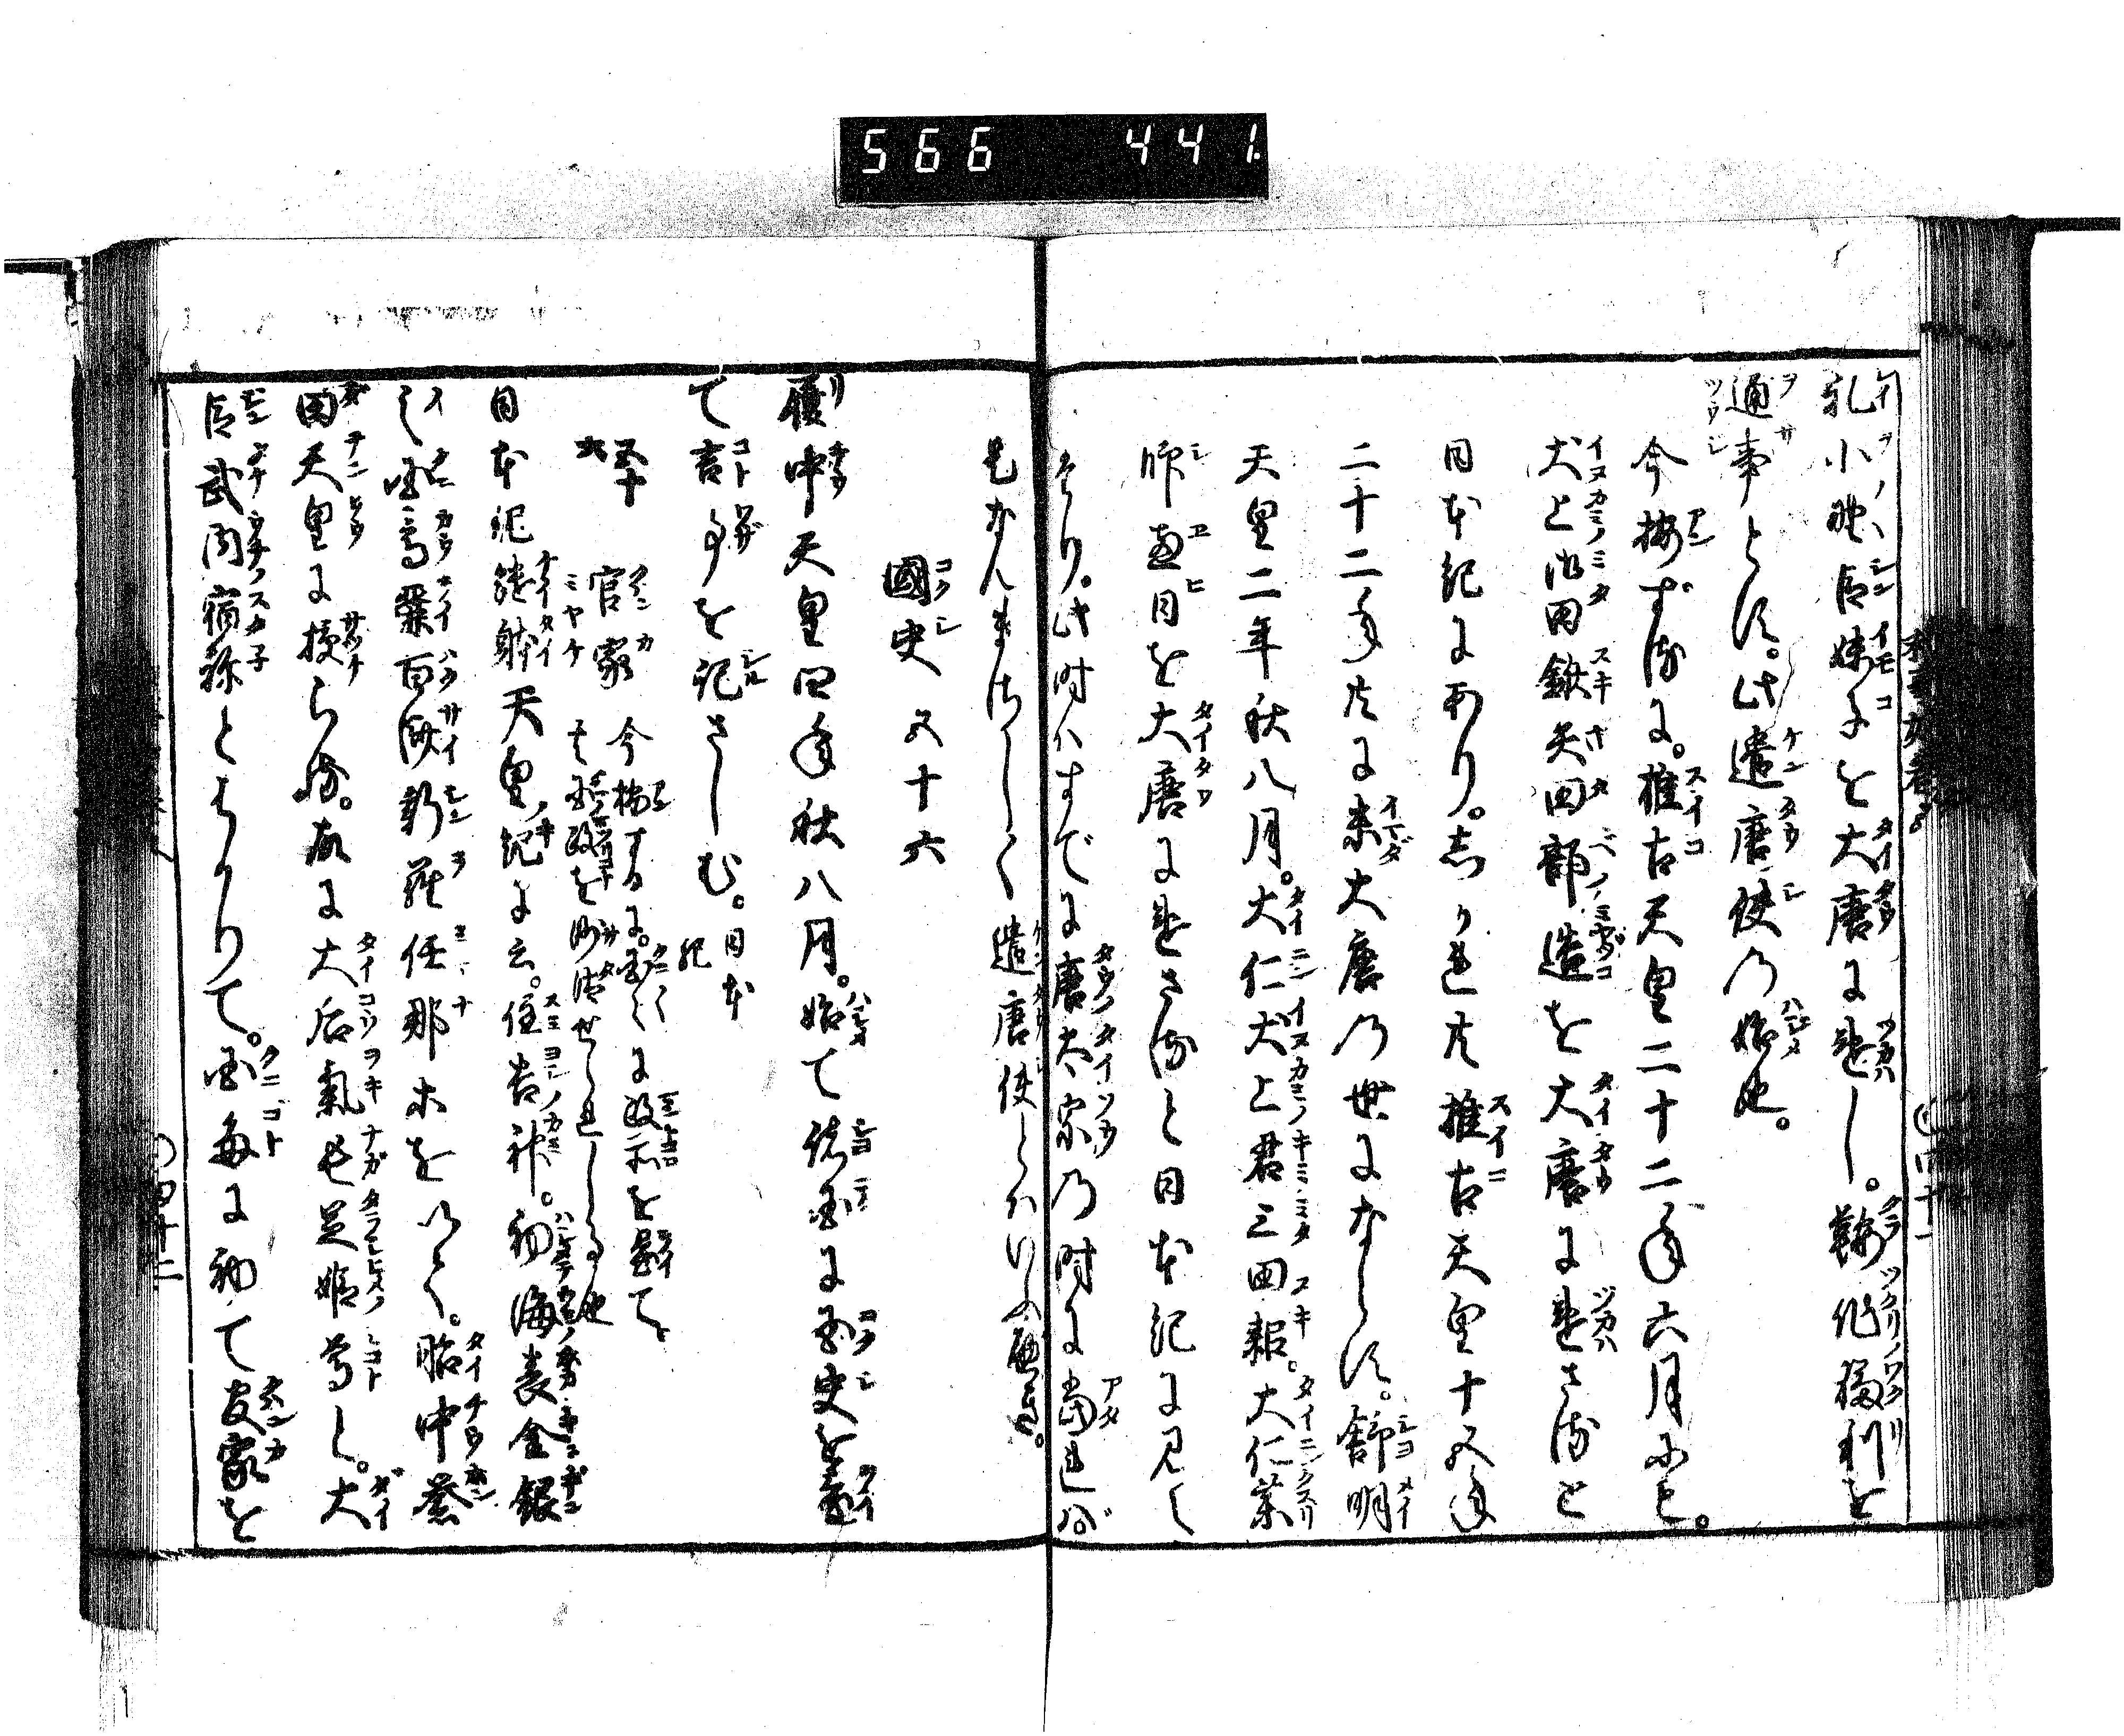 566 441
礼小野臣妹子を大唐に遣し。鞍作福利を
通事とす。此遣唐使の始也。
今按ずるに。推古天皇二十二年六月にも。
犬上御田鍬矢田部造を大唐に遣さると
日本紀にあり。しかれ共推古天皇十五年
二十二年共に未大唐の世にならず。舒明
天皇二年秋八月。大仁犬上君三田耜。大仁薬
師恵日を大唐に遣さると日本紀に見え
たり。此時はすでに唐太宗の時に当れば
遣唐使とは
國史 五十六
履中天皇四年秋八月。始て諸国に国史を置
て言事を記さしむ。日本
紀
五十七 官家 今按ずるに。国々に政所を置て。
其国政を沙汰せられしる也
日本紀継躰天皇紀に云。住吉神。初海表金銀
之国高麗百済新羅任那等を以て。胎中誉
田天皇に授らる。故に大后氣長足姫尊と。大
臣武内宿祢とはかりて。国毎に初て官家を
四十二